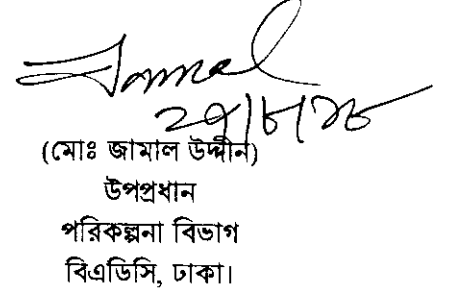 Jamal
২৭/৮/১৮
(মোঃ জামাল উদ্দীন)
উপপ্রধান
পরিকল্পনা বিভাগ
বিএডিসি, ঢাকা।